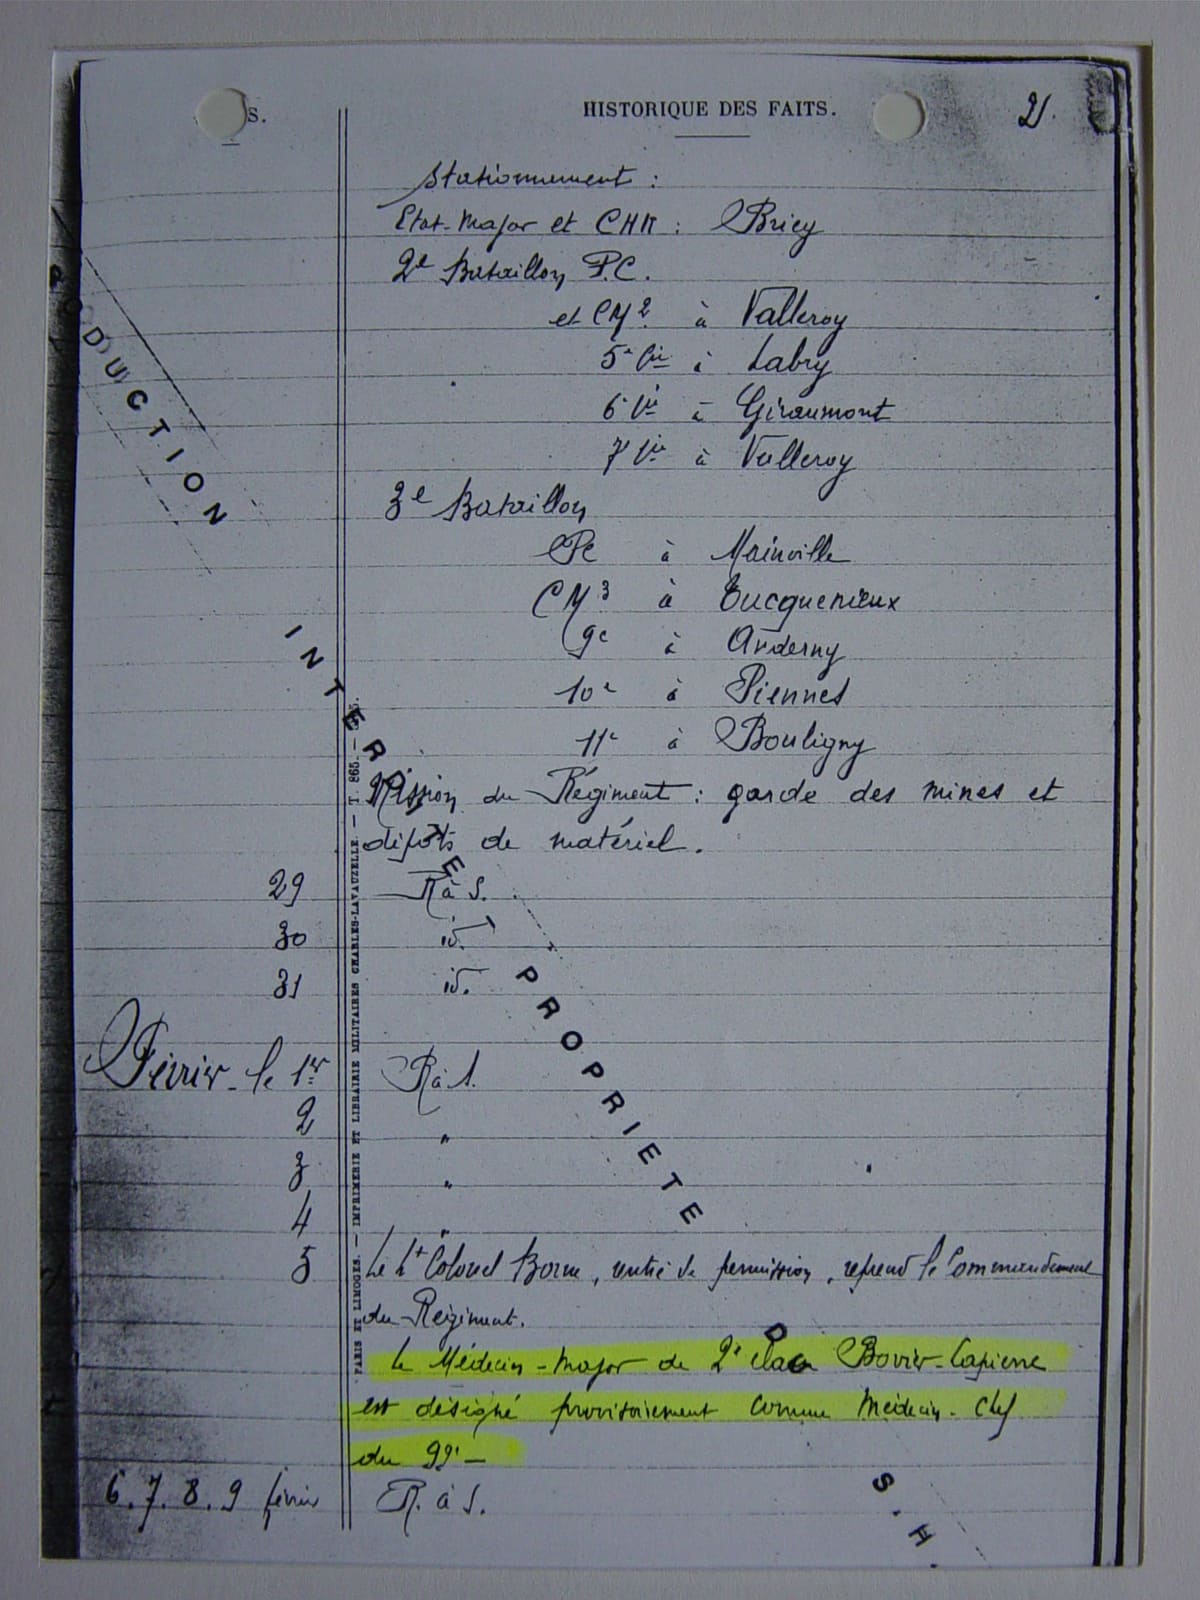 S.
HISTORIQUE DES FAITS.
21.
Stationnement :
Etat-Major et CHR : Briey
2e Bataillon P.C.
et CM2 à Valleroy
5e Cie à Labry
6e Cie à Giraumont
7e Cie à Valleroy
3e Bataillon
PC à Mainville
CM3 à Tucquenieux
9e à Anderny
10e à Piennes
11e à Bouligny
Mission du Régiment : garde des mines et
dépôts de matériel.
29 R à S.
30 id.
31 id.
Février le 1er R à S.
2 "
3 "
4 "
5 Le Lt Colonel Borne, rentré de permission, reprend le Commandement
du Régiment.
Le Médecin-major de 2e classe Bovier-Lapierre
est désigné provisoirement comme Médecin-Chef
du 99e —
6. 7. 8. 9 février R. à S.
PARIS ET LIMOGES. — IMPRIMERIE ET LIBRAIRIE MILITAIRES CHARLES-LAVAUZELLE. — T. 865. —
ODUCTION INTERDITE PROPRIETE DU S.H.